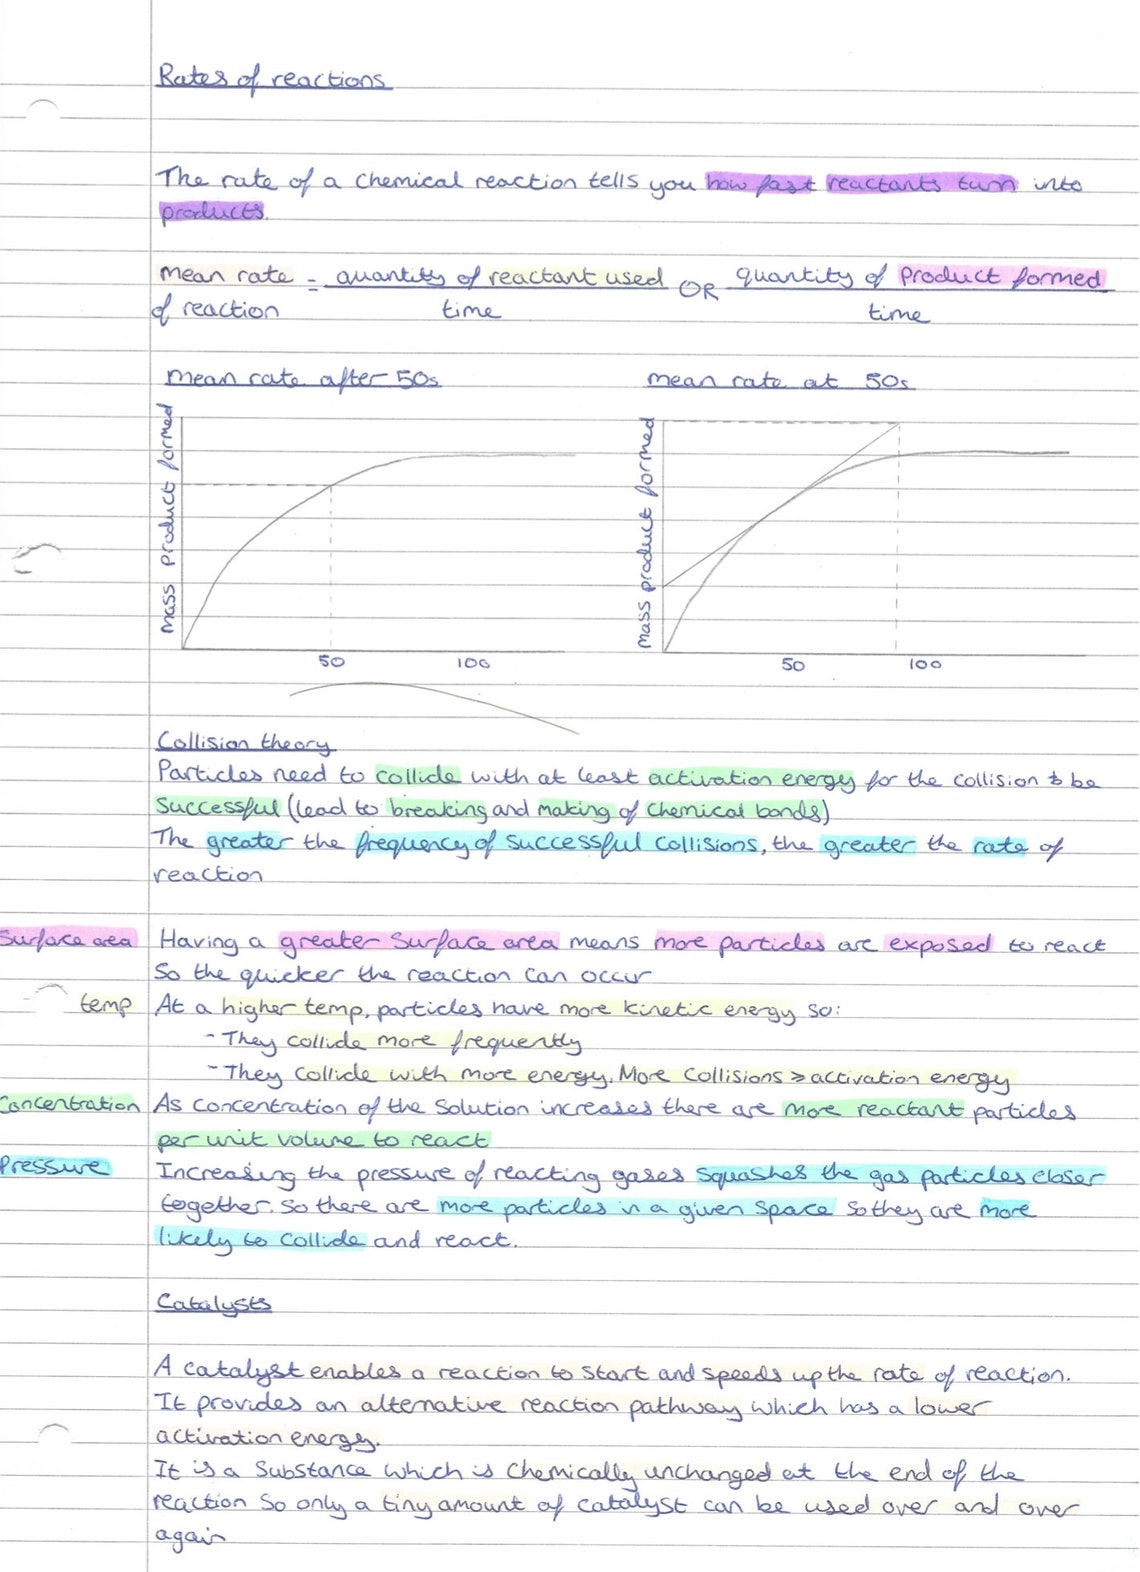 Rates of reactions
The rate of a chemical reaction tells you how fast reactants turn into
products.
mean rate = quantity of reactant used OR quantity of product formed
of reaction time time
mean rate after 50s
mean rate at 50s
Mass product formed
50 100
Mass product formed
50 100
Collision theory
Particles need to collide with at least activation energy for the collision to be
successful (lead to breaking and making of chemical bonds)
The greater the frequency of successful collisions, the greater the rate of
reaction
Surface area Having a greater surface area means more particles are exposed to react
so the quicker the reaction can occur
temp At a higher temp, particles have more kinetic energy so:
- They collide more frequently
- They collide with more energy. More collisions ≥ activation energy
Concentration As concentration of the solution increases there are more reactant particles
per unit volume to react
Pressure Increasing the pressure of reacting gases squashes the gas particles closer
together. So there are more particles in a given space so they are more
likely to collide and react.
Catalysts
A catalyst enables a reaction to start and speeds up the rate of reaction.
It provides an alternative reaction pathway which has a lower
activation energy.
It is a substance which is chemically unchanged at the end of the
reaction so only a tiny amount of catalyst can be used over and over
again